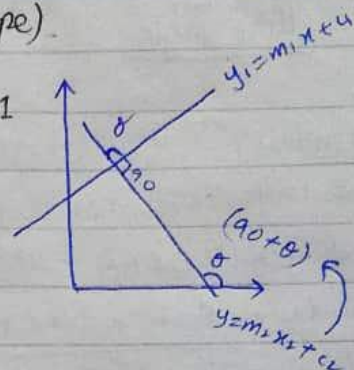 pe)
y₁=m₁x+c₁
1
γ
90
(90+θ)
θ
y=m₂x₂+c₂